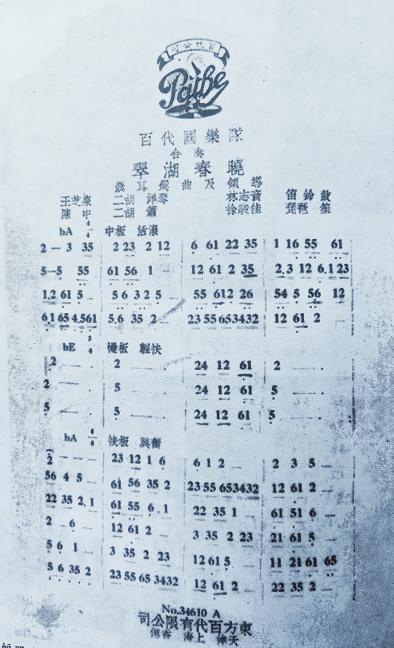 百代公司
Pathe
百代國樂隊
合奏
翠湖春曉
聶耳 編曲及領導
王芝泉 二胡 洋琴 林志音 笛 鈴鼓
陳中 二胡 簫 琵琶 笙
bA 中板 活潑
2 — 3 35 2 23 2 12 6 61 22 35 1 16 55 61
5 — 5 55 61 56 1 12 61 2 35 2.3 12 6.1 23
1.2 61 5 — 5 6 3 2 5 55 612 26 54 5 56 12
6.1 65 4.5 61 5.6 35 2 — 23 55 653432 12 61 2 —
bE 慢板 輕快
2 — 2 — 24 12 61 2 —
2 — 5 — 24 12 61 5 —
5 — 5 — 24 12 61 5 —
bA 快板 興奮
2 — 23 12 1 6 6 1 2 — 2 3 5 —
56 4 5 — 61 56 35 2 23 55 653432 12 61 2 —
22 35 2.1 61 55 6.1 22 35 1 61 51 6 —
2 — 6 — 12 61 2 — 3 35 2 23 21 61 5 —
5 6 1 — 3 35 2 23 12 61 5 — 11 21 61 65
5 6 35 2 23 55 65 3432 12 61 2 — 22 35 2 —
No.34610 A
東方百代有限公司
上海